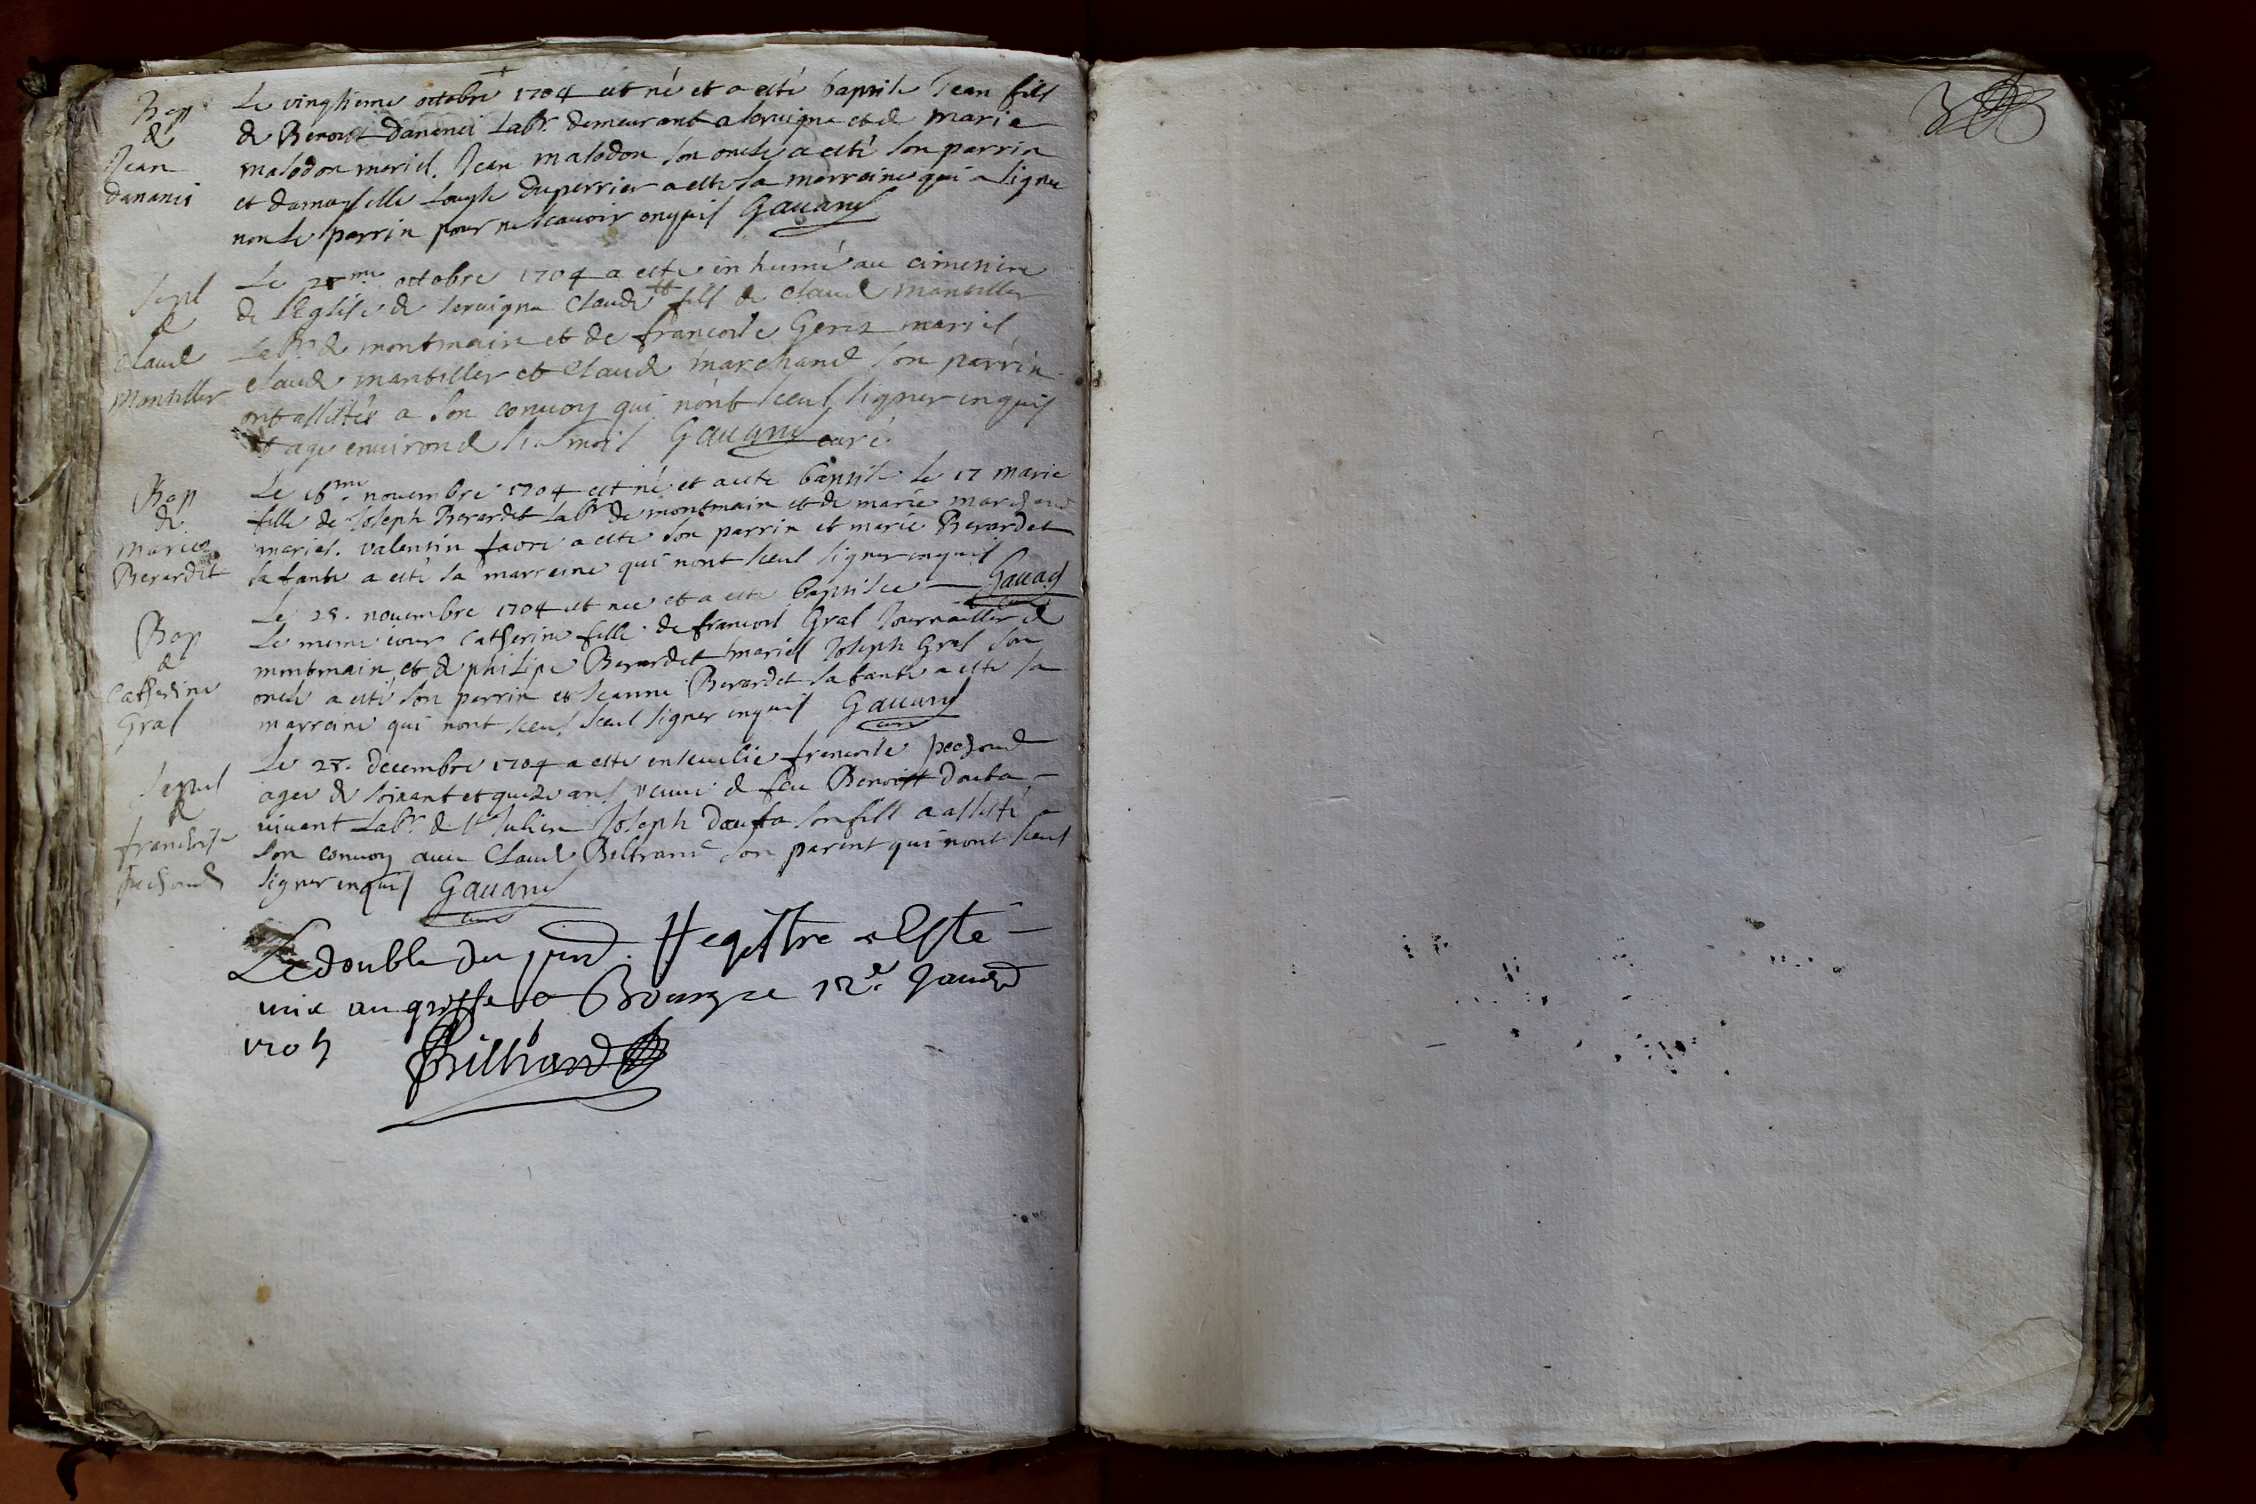 Bap
de
Jean
dananci
Le vingtieme octobre 1704 est né et a esté baptisé Jean fils
de Benoist dananci Lab.r demeurant a servigna et de marie
malodon mariés. Jean malodon son oncle a esté son parrin
et damoyselle duperrier a esté sa marreine qui a signé
non le parrin pour ne scavoir enquis Gavand
Sepul
de
Claude
Mantiller
Le me octobre 1704 a esté inhumé au cimetiere
de l'Eglise de servigna Claude fils de Claude mantiller
Lab.r de montmain et de francoise mariés
Claude mantiller et Claude marchand son parrin
ont assistés a son convoy qui n'ont sceus signer enquis
et agé environ de six mois Gavand curé
Bap
de
marie
Berardet
Le 16.me novembre 1704 est né et a esté baptisé le 17 marie
fille de Joseph Berardet Lab.r de montmain et de marie marchand
mariés. valentin favre a esté son parrin et marie Berardet
sa tante a esté sa marreine qui n'ont sceus signer enquis
Gavand
Bap
de
Catherine
Gral
Le novembre 1704 est nee et a esté baptisée
Le meme iour Catherine fille de francois Gral Journallier de
montmain et de philipe Berardet mariés Joseph Gral son
oncle a esté son parrin et Jeanne Berardet sa tante a esté sa
marreine qui n'ont sceus sceus signer enquis Gavand
curé
Sepul
de
francoise
pechoud
Le decembre 1704 a esté ensevelie francoise pechoud
agee de soixant et quize ans veuve de feu Benoist douta
vivant Lab.r de st Julien Joseph douta son fils a assisté
son convoy avec Claude Beltrand son parent qui n'ont sceus
signer enquis Gavand
curé
Le double du pnd. Registre a Esté
mis au greffe a Bourg ce 12.e Janv
1705